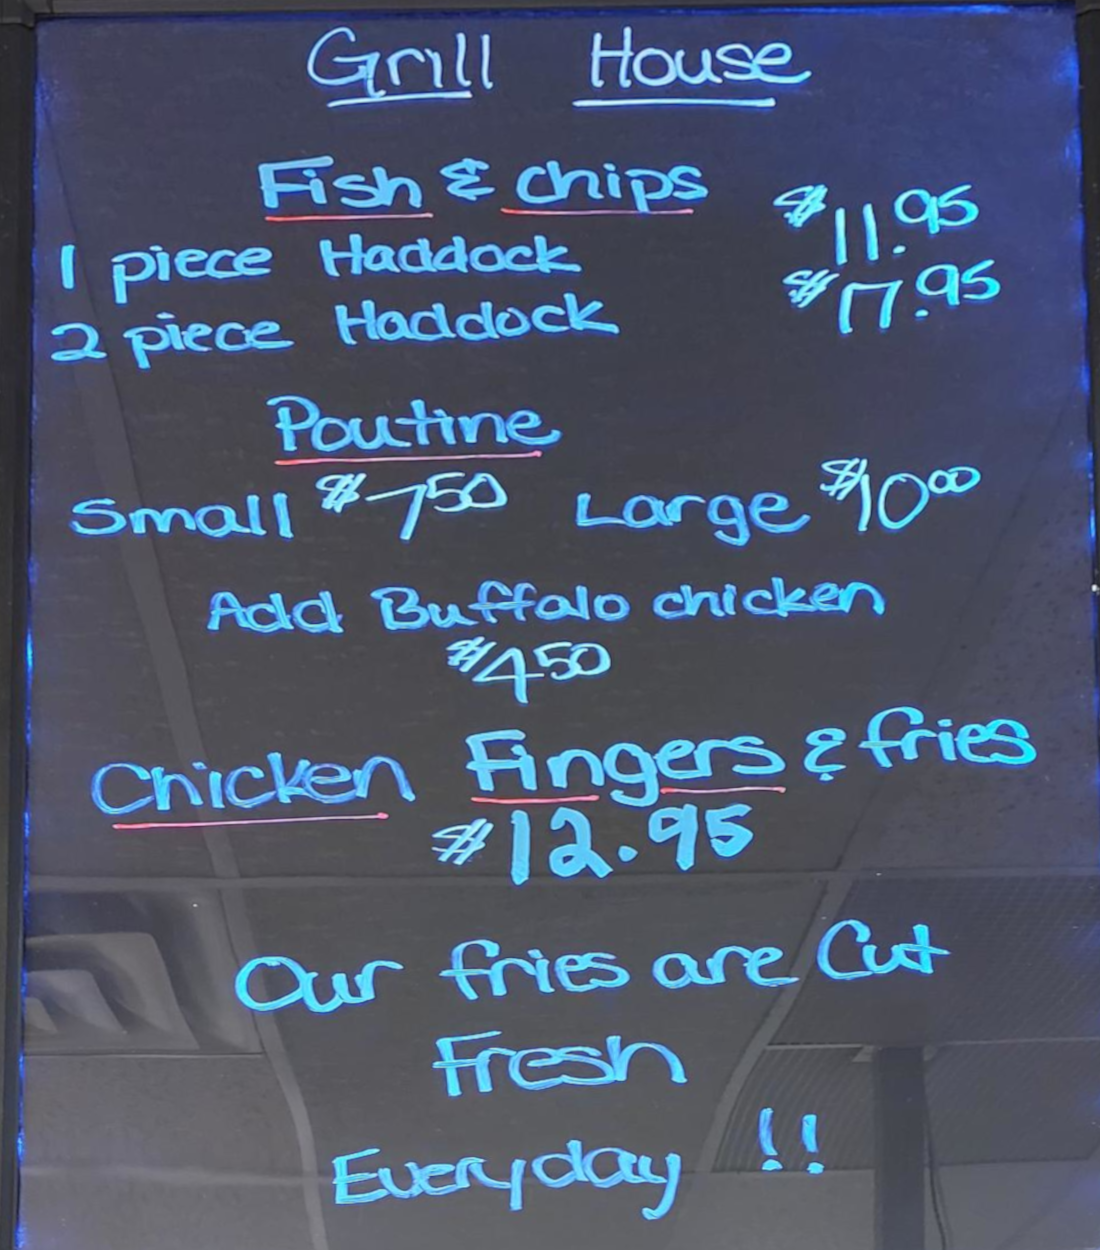 Grill House
Fish & Chips
1 piece Haddock $11.95
2 piece Haddock $17.95
Poutine
Small $7.50 Large $10.00
Add Buffalo chicken
$4.50
Chicken Fingers & fries
$12.95
Our fries are Cut
Fresh
Everyday !!